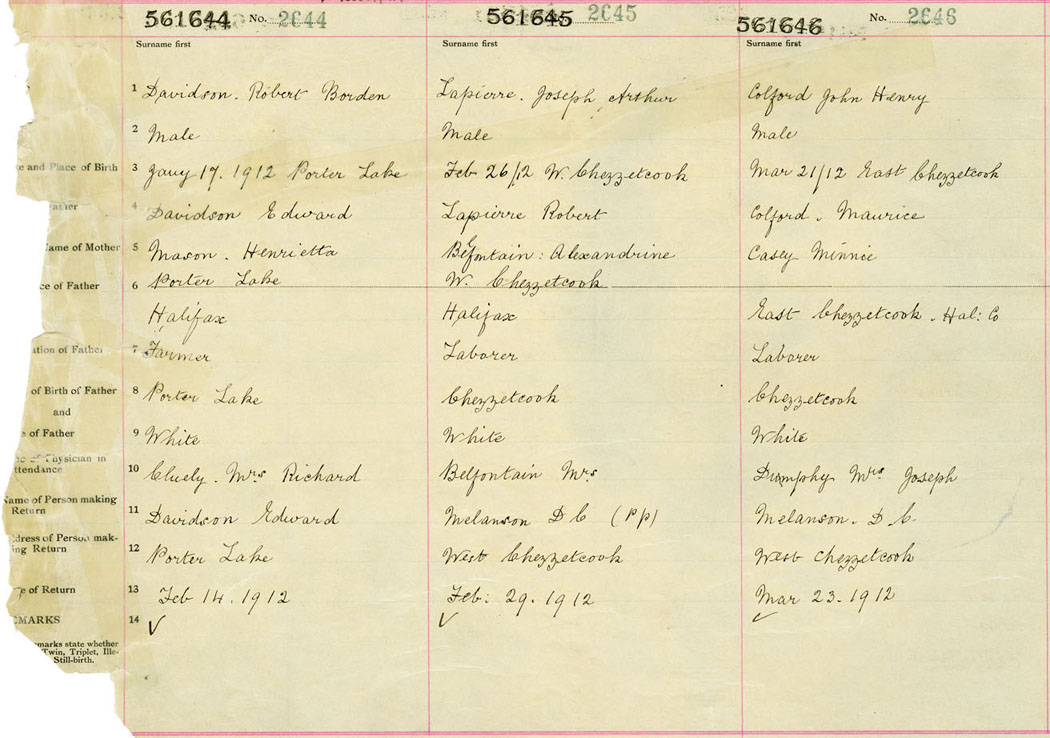 561644 No. 2644
561645 2645
561646 No. 2646
Surname first
Surname first
Surname first
1 Davidson. Robert Borden
Lapierre. Joseph Arthur
Colford John Henry
2 Male
Male
Male
and Place of Birth 3 Jany 17. 1912 Porter Lake
Feb 26/12 W. Chezzetcook
Mar 21/12 East Chezzetcook
4 Davidson Edward
Lapierre Robert
Colford. Maurice
ame of Mother 5 Mason. Henrietta
Belfontain: Alexandrine
Casey Minnie
ce of Father 6 Porter Lake
W. Chezzetcook
Halifax
Halifax
East Chezzetcook. Hal: Co
ation of Father 7 Farmer
Laborer
Laborer
of Birth of Father 8 Porter Lake
Chezzetcook
Chezzetcook
and
of Father 9 White
White
White
Physician in
ttendance 10 Cluely. Mrs Richard
Belfontain Mrs
Dumphy Mrs Joseph
Name of Person making
Return 11 Davidson Edward
Melanson D C (PP)
Melanson. D. C.
dress of Person mak-
ing Return 12 Porter Lake
West Chezzetcook
West Chezzetcook
e of Return 13 Feb 14. 1912
Feb: 29. 1912
Mar 23. 1912
EMARKS 14 ✓
✓
✓
marks state whether
Twin, Triplet, Ille-
Still-birth.